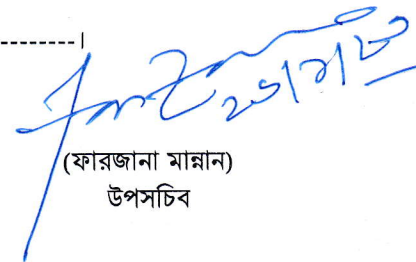 ---------------।
(ফারজানা মান্নান)
উপসচিব